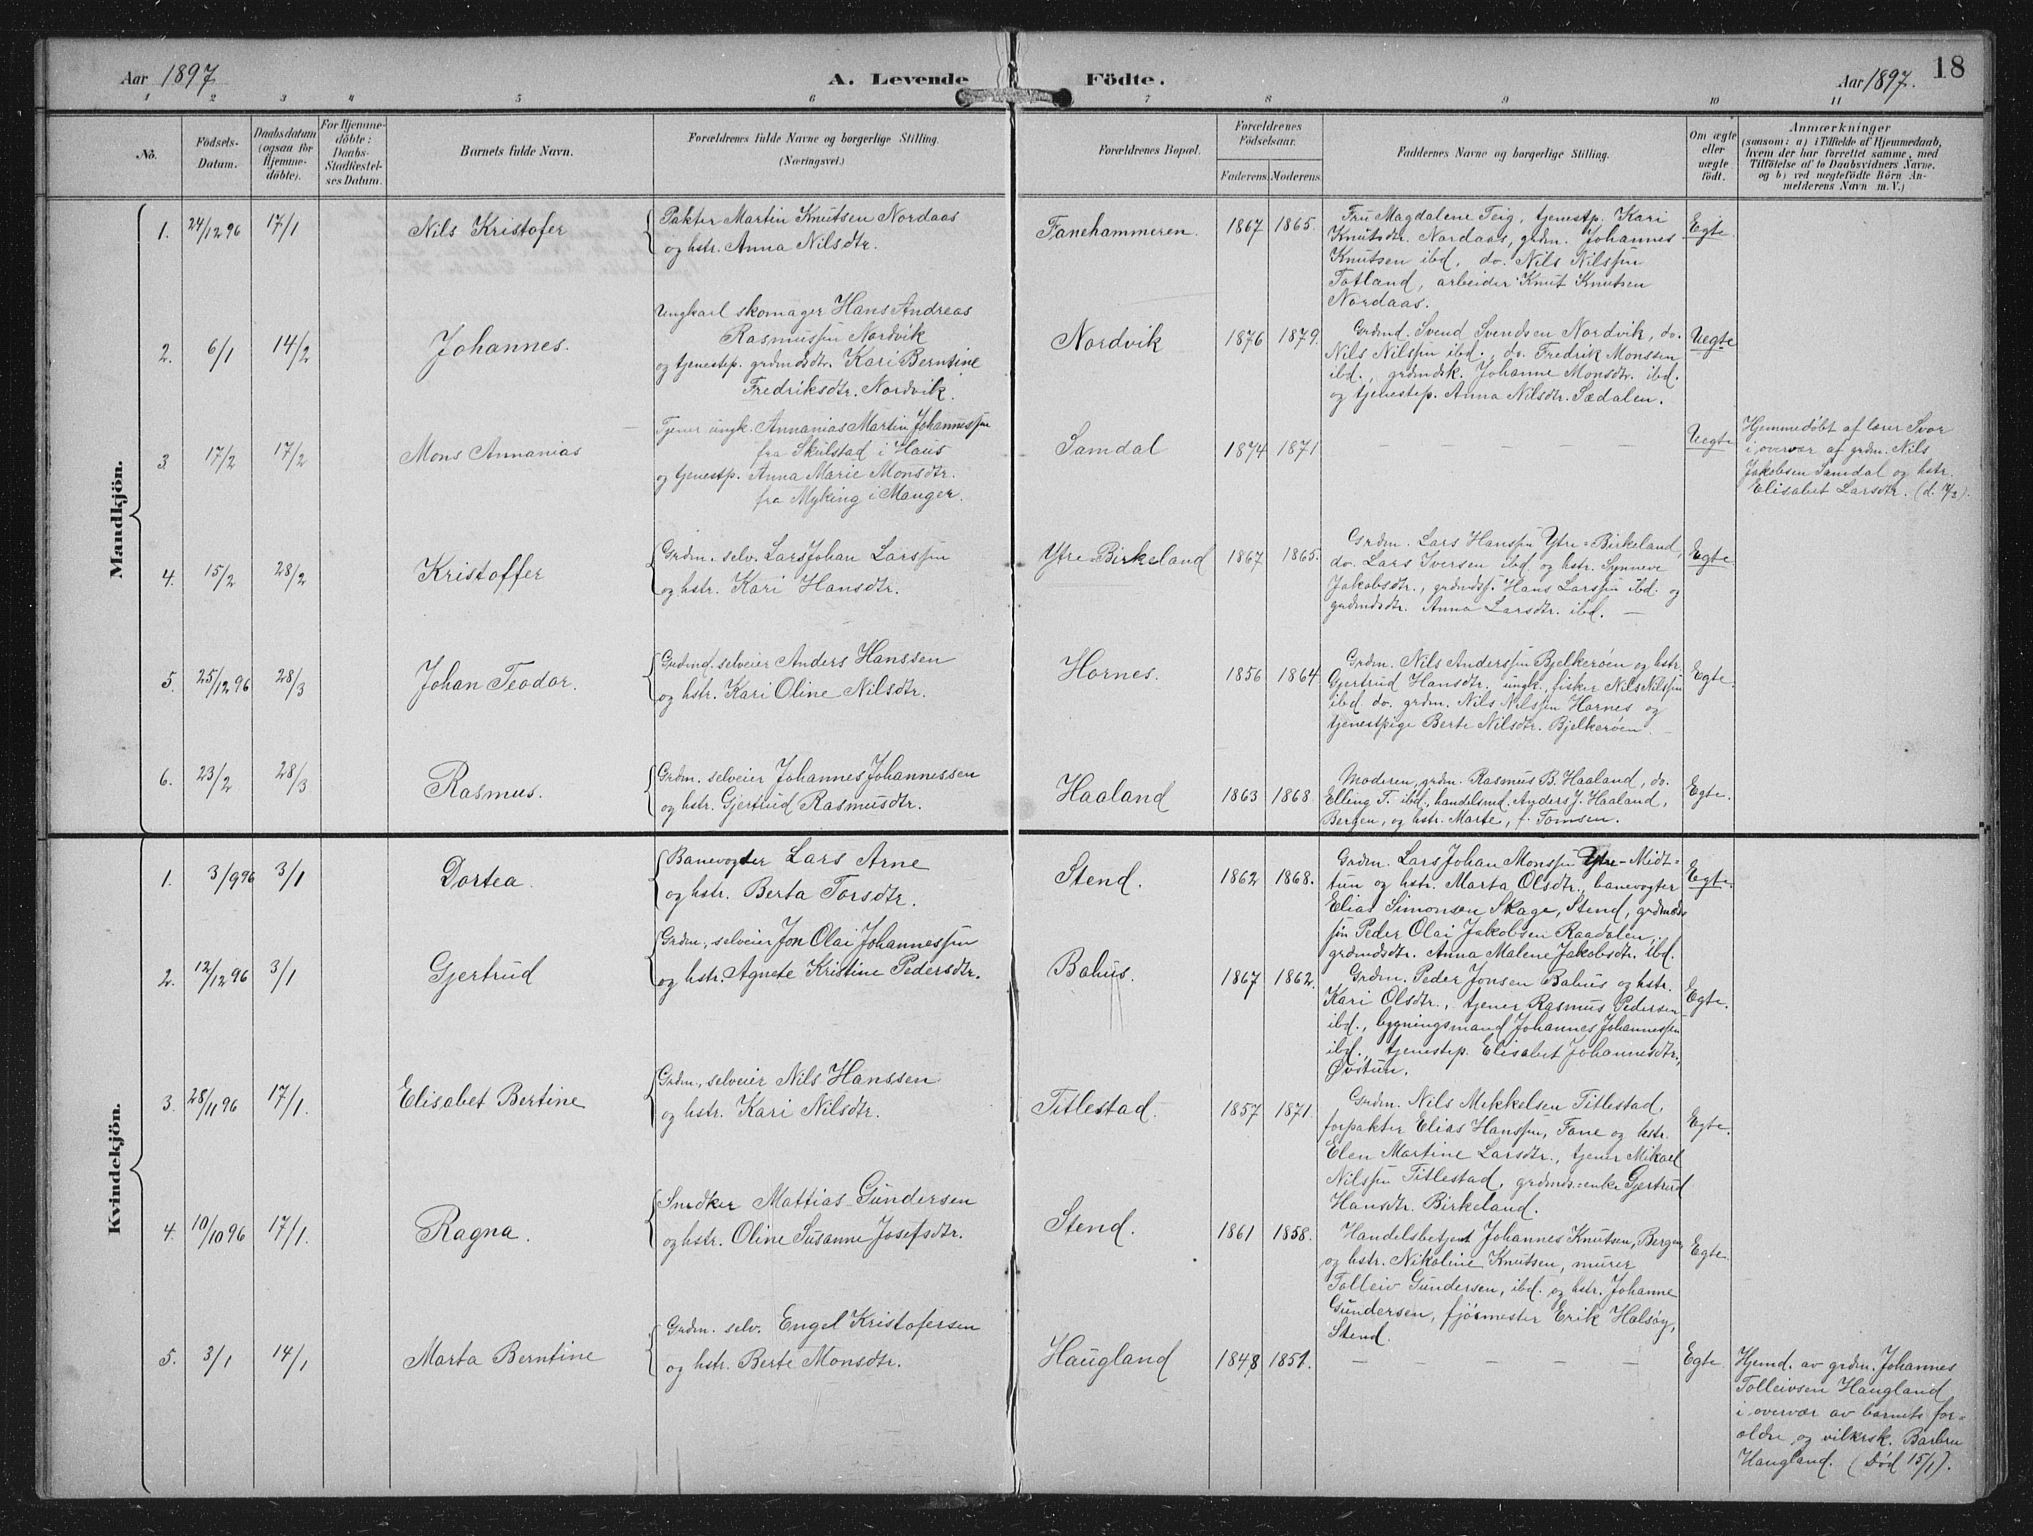 Aar 1897 A. Levende Födte. Aar 1897. 18
1 2 3 4 5 6 7 8 9 10 11
No.
Födsels-
Datum.
Daabsdatum
(ogsaa för
Hjemme-
döbte).
For Hjemme-
döbte:
Daabs-
Stadfæstel-
ses Datum.
Barnets fulde Navn.
Forældrenes fulde Navne og borgerlige Stilling.
(Næringsvei.)
Forældrenes Bopæl.
Forældrenes
Födselsaar.
Faderens. Moderens.
Faddernes Navne og borgerlige Stilling.
Om ægte
eller
uægte
födt.
Anmærkninger
(saasom: a) i Tilfælde af Hjemmedaab,
hvem der har forrettet samme, med
Tilföielse af to Daabsvidners Navne.
og b) ved uægtefödte Börn An-
melderens Navn m. V.)
Mandkjön.
1. 24/12 96 17/1 Nils Kristofer
Pakter Martin Knutsen Nordaas
og hstr. Anna Nilsdtr.
Fanehammeren. 1867 1865.
Fru Magdalene Teig, tjenestp. Kari
Knutsdtr. Nordaas, grdm. Johannes
Knutsen ibd, do. Nils Nilssen
Totland, arbeider Knut Knutsen
Nordaas.
Egte
2. 6/1 14/2 Johannes.
Ungkarl skomager Hans Andreas
Rasmussen Nordvik
og tjenestep. grdmdsdtr. Kari Berntine
Fredriksdtr. Nordvik.
Nordvik 1876 1879.
Grdmd. Svend Svendsen Nordvik, do.
Nils Nilssen ibd., do. Fredrik Monssen
ibd., grdmdsk. Johanne Monsdtr. ibd.
og tjenestep. Anna Nilsdtr. Sædalen.
Uegte
3. 17/2 17/2 Mons Annanias
Tjener ungk. Annanias Martin Johannessen
fra Skulstad i Haus
og tjenestp. Anna Marie Monsdtr.
fra Myking i Manger.
Samdal 1874 1871
— — — — — —
Uegte
Hjemmedøbt af lærer Svor
i overvær af grdm. Nils
Jakobsen Samdal og hstr.
Elisabet Larsdtr. (d.
4. 15/2 28/2 Kristoffer
Grdm. selv. Lars Johan Larssen
og hstr. Kari Hansdtr.
Ytre-Birkeland 1867 1865.
Grdm. Lars Hanssen Ytre-Birkeland,
do. Lars Iversen ibd. og hstr. Synneve
Jakobsdtr., grdmdss. Hans Larssen ibd. og
grdmdsdtr. Anna Larsdtr. ibd. —
Egte
5. 25/12 96 28/3 Johan Teodor.
Grdmd. selveier Anders Hanssen
og hstr. Kari Oline Nilsdtr.
Hornes. 1856 1864
Grdm. Nils Anderssen Bjelkerøen og hstr.
Gjertrud Hansdtr. ungk., fisker Nils Nilssen
ibd. do. grdm. Nils Nilssen Hornes og
tjenestpige Berte Nilsdtr. Bjelkerøen. —
Egte.
6. 23/2 28/3 Rasmus.
Grdm. selveier Johannes Johannessen
og hstr. Gjertrud Rasmusdtr.
Haaland 1863 1868
Moderen, grdm. Rasmus B. Haaland, do.
Elling T. ibd., handelsmd. Anders J. Haaland,
Bergen, og hstr. Marte, f. Tomsen.
Egte.
Kvindekjön.
1. 3/9 96 3/1 Dortea.
Banevogter Lars Arne
og hstr. Berta Torsdtr.
Stend. 1862 1868.
Grdm. Lars Johan Monssen Ytre-Midt-
tun og hstr. Marta Olsdtr., banevogter
Elias Simonsen Skage, Stend, grdmds-
søn Peder Olai Jakobsen Raadalen,
grdmdsdtr. Anna Malene Jakobsdtr. ibd.
Egte.
2. 12/12 96 3/1 Gjertrud
Grdm., selveier Jon Olai Johannessen
og hstr. Agnete Kristine Pedersdtr.
Bahus. 1867 1862.
Grdm. Peder Jonsen Bahus og hstr.
Kari Olsdtr., tjener Rasmus Pedersen
ibd., bygningsmand Johannes Johannessen
ibd., tjenestep. Elisabet Johannesdtr,
Øvstun.
Egte.
3. 28/11 96 17/1. Elisabet Bertine
Grdm., selveier Nils Hanssen
og hstr. Kari Nilsdtr.
Titlestad. 1857 1871.
Grdm. Nils Mikkelsen Titlestad,
forpakter Elias Hanssen, Fane og hstr.
Elen Martine Larsdtr., tjener Mikael
Nilssen Titlestad, grdmds-enke Gjertrud
Hansdtr. Birkeland.
Egte.
4. 10/10 96 17/1. Ragna.
Snedker Mattias Gundersen
og hstr. Oline Susanne Josefsdtr.
Stend. 1861 1858.
Handelsbetjent Johannes Knutsen, Bergen
og hstr. Nikoline Knutsen, murer
Tolleiv Gundersen, ibd. og hstr. Johanne
Gundersen, fjøsmester Erik Halsøy,
Stend.
Egte.
5. 3/1 14/1 Marta Berntine
Grdm. selv. Engel Kristofersen
og hstr. Berte Monsdtr.
Haugland 1848 1851.
— — — — — —
Egte.
Hjemd. av grdm. Johannes
Tolleivsen Haugland
i overvær av barnets for-
ældre og vilkrsk. Barbru
Haugland. (Død 15/1).